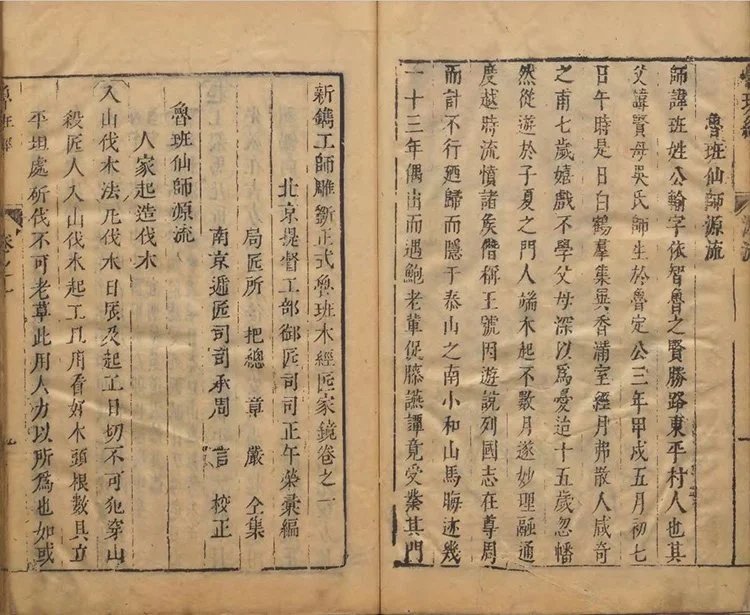 魯班仙師源流
師諱班姓公輸字依智魯之賢勝路東平村人也其
父諱賢母吳氏師生於魯定公三年甲戌五月初七
日午時是日白鶴羣集異香滿室經月弗散人咸奇
之甫七歲嬉戲不學父母深以爲愛迨十五歲忽幡
然從遊於子夏之門人端木起不數月遂妙理融通
度越時流憤諸矦僭稱王號因遊說列國志在尊周
而計不行廼歸而隱于泰山之南小和山焉晦迹幾
一十三年偶出而遇鮑老軰促膝讌譚竟受業其門
新鐫工師雕斵正式魯班木經匠家鏡卷之一
北京提督工部御匠司司正午榮彙編
局匠所把總章嚴仝集
南京遞匠司司承周言校正
魯班仙師源流
人家起造伐木
入山伐木法凡伐木日辰及起工日切不可犯穿山
殺匠人入山伐木起工且用看好木頭根數具立
平坦處斫伐不可老草此用人力以所爲也如或
魯班經 卷之一